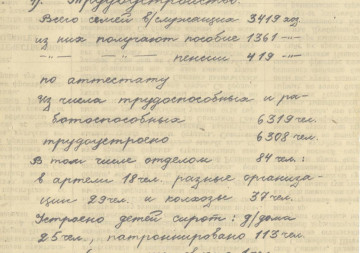 Трудоустройство.
Всего семей в/служащих 3419 хоз
из них получают пособие 1361 -"-
-"- -"- пенсии 419 -"-
по аттестату
Из числа трудоспособных и ра-
ботоспособных 6319 чел.
трудоустроено 6308 чел.
В том числе отделом 84 чел:
в артели 18 чел. разные организа-
ции 29 чел и колхозы 37 чел.
Устроено детей сирот: д/дома
25 чел., патронировано 113 чел.